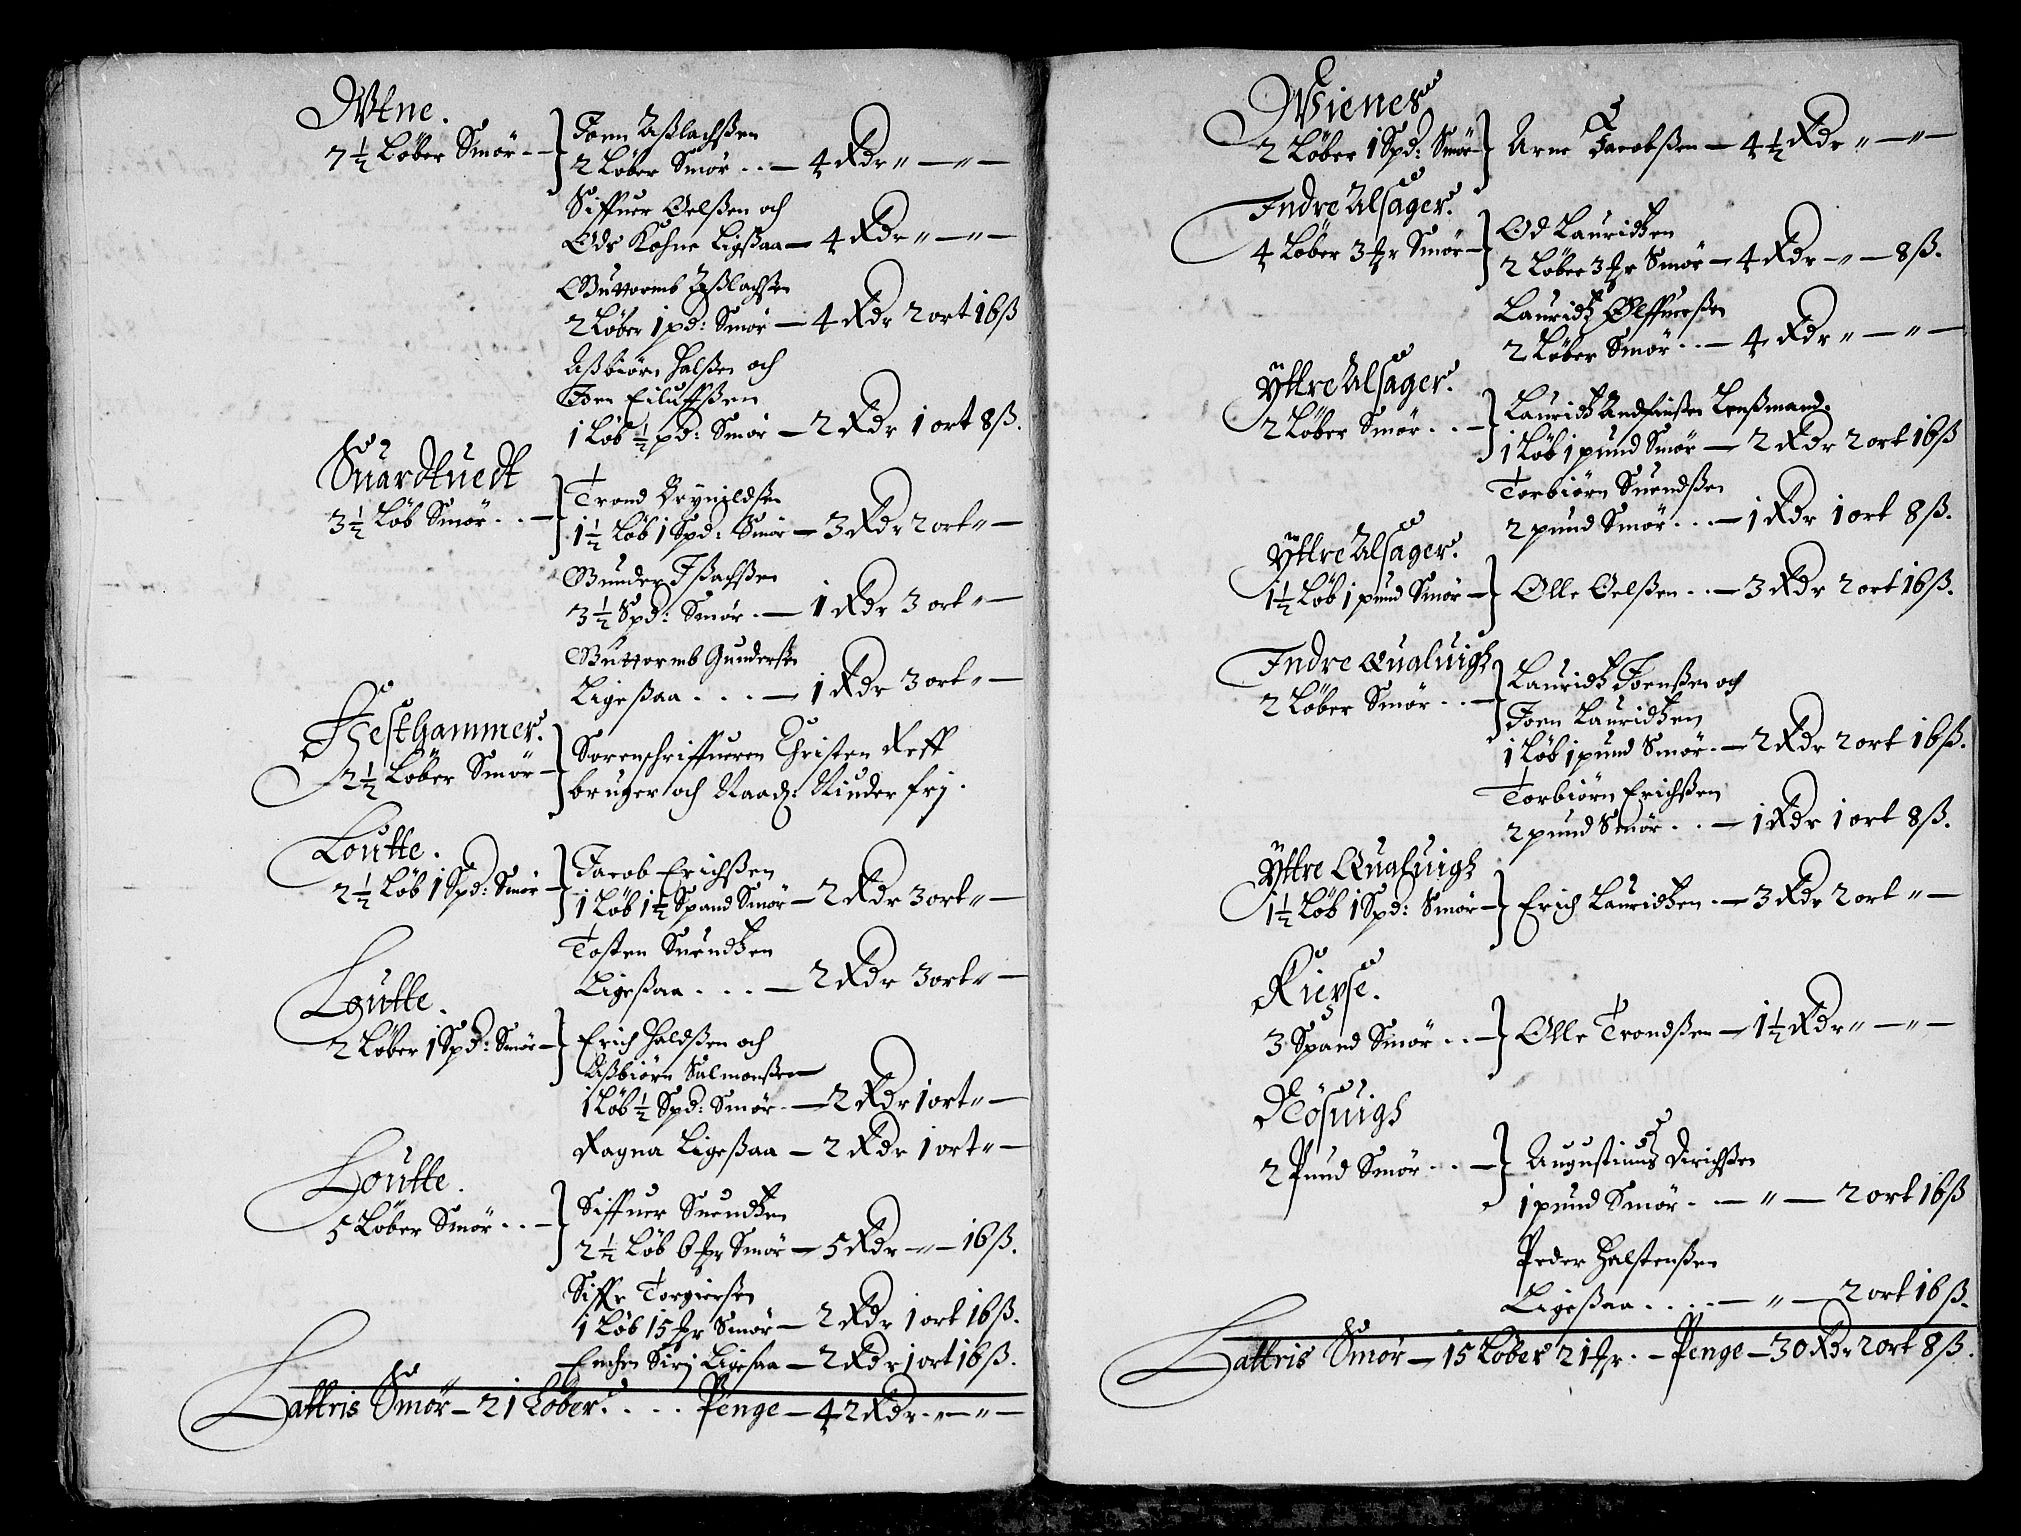 Wtne.
7½ Løber Smør -
Joen Aßlachßen
2 Løber Smør . . — 4 Rdr „ — „ —
Siffuer Oelßen och
Ods Kohne Ligßaa — 4 Rdr „ — „ —
Guttormb Aßlachßen
2 Løber 1 pd: Smør — 4 Rdr 2 ort 16 ß
Aßbiørn Halßen och
Joen Eiluffßen
1 Løb ½ pd: Smør — 2 Rdr 1 ort 8 ß.
Suardtuedt
3½ Løb Smør . . —
Trond Brynildßen
1½ Løb 1 Spd: Smør — 3 Rdr 2 ort „ —
Gunder Ißachßen
3½ Spd: Smør . — 1 Rdr 3 ort „ —
Guttormb Gunderßen
Ligeßaa . . . — 1 Rdr 3 ort „ —
Hesthammer.
2½ Løber Smør —
Sorenschriffueren Christen Reff
bruger och Raad: Riuder frj.
Loutte.
2½ Løb 1 Spd: Smør —
Jacob Erichßen
1 Løb 1½ Spand Smør — 2 Rdr 3 ort „ —
Tosten Suendtzen
Ligeßaa . . . — 2 Rdr 3 ort „ —
Loutte.
2 Løber 1 Spd: Smør —
Erich Haldßen och
Aßbiørn Salmonßen
1 Løb ½ Spd: Smør . — 2 Rdr 1 ort „ —
Ragna Ligeßaa — 2 Rdr 1 ort „ —
Loutte.
5 Løber Smør . . —
Siffuer Suendtzen
2½ Løb 6 ȝr Smør — 5 Rdr — „ — 16 ß.
Siffr Torgierßen
1 Løb 15 ȝr Smør — 2 Rdr 1 ort 16 ß.
Enchen Sirj Ligeßaa — 2 Rdr 1 ort 16 ß.
Lattris Smør — 21 Løber . . . . Penge — 42 Rdr „ — „ —
Wienes
2 Løber 1 Spd: Smør —
Arne Jacobßen — 4½ Rdr „ — „ —
Indre Alsager.
4 Løber 3 ȝr Smør —
Od Lauridtzen
2 Løber 3 ȝr Smør — 4 Rdr — „ — 8 ß.
Lauridtz Ølffuerßen
2 Løber Smør . . — 4 Rdr „ — „ —
Yttre Alsager.
2 Løber Smør . . —
Lauridtz Andfinßen Lenßmand.
1 Løb 1 pund Smør — 2 Rdr 2 ort 16 ß
Torbiørn Suendßen
2 pund Smør . . . — 1 Rdr 1 ort 8 ß.
Yttre Alsager.
1½ Løb 1 pund Smør —
Olle Oelßen . . — 3 Rdr 2 ort 16 ß.
Indre Qualuigh
2 Løber Smør . . —
Lauridtz Joenßen och
Joen Lauridtzen
1 Løb 1 pund Smør . — 2 Rdr 2 ort 16 ß.
Torbiørn Erichßen
2 pund Smør . . — 1 Rdr 1 ort 8 ß.
Yttre Qualuigh
1½ Løb 1 Spd: Smør —
Erich Lauridtzen . — 3 Rdr 2 ort „ —
Rießse.
3 Spand Smør . . —
Olle Trondßen — 1½ Rdr „ — „ —
Nösuigh
2 Pund Smør . . —
Augustinus Dirichßen
1 pund Smør . — „ — 2 ort 16 ß
Peder Halstenßen
Ligeßaa . . . . — „ — 2 ort 16 ß.
Lattris Smør — 15 Løber 21 ȝr. — Penge — 30 Rdr 2 ort 8 ß.